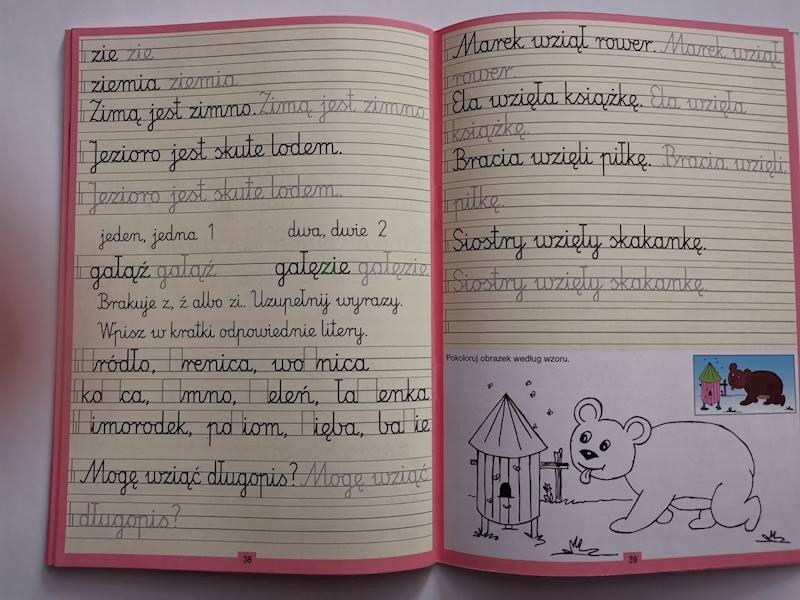 zie zie
ziemia ziemia
Zimą jest zimno. Zimą jest zimno.
Jezioro jest skute lodem.
Jezioro jest skute lodem.
jeden, jedna 1 dwa, dwie 2
gałąź gałąź gałęzie gałęzie
Brakuje z, ź albo zi. Uzupełnij wyrazy.
Wpisz w kratki odpowiednie litery.
ródło, renica, wo nica
ko ca, mno, eleń, ła enka
imorodek, po iom, ięba, ba ie
Mogę wziąć długopis? Mogę wziąć
długopis?
38
Marek wziął rower. Marek wziął
rower.
Ela wzięła książkę. Ela wzięła
książkę.
Bracia wzięli piłkę. Bracia wzięli
piłkę.
Siostry wzięły skakankę.
Siostry wzięły skakankę.
Pokoloruj obrazek według wzoru.
39